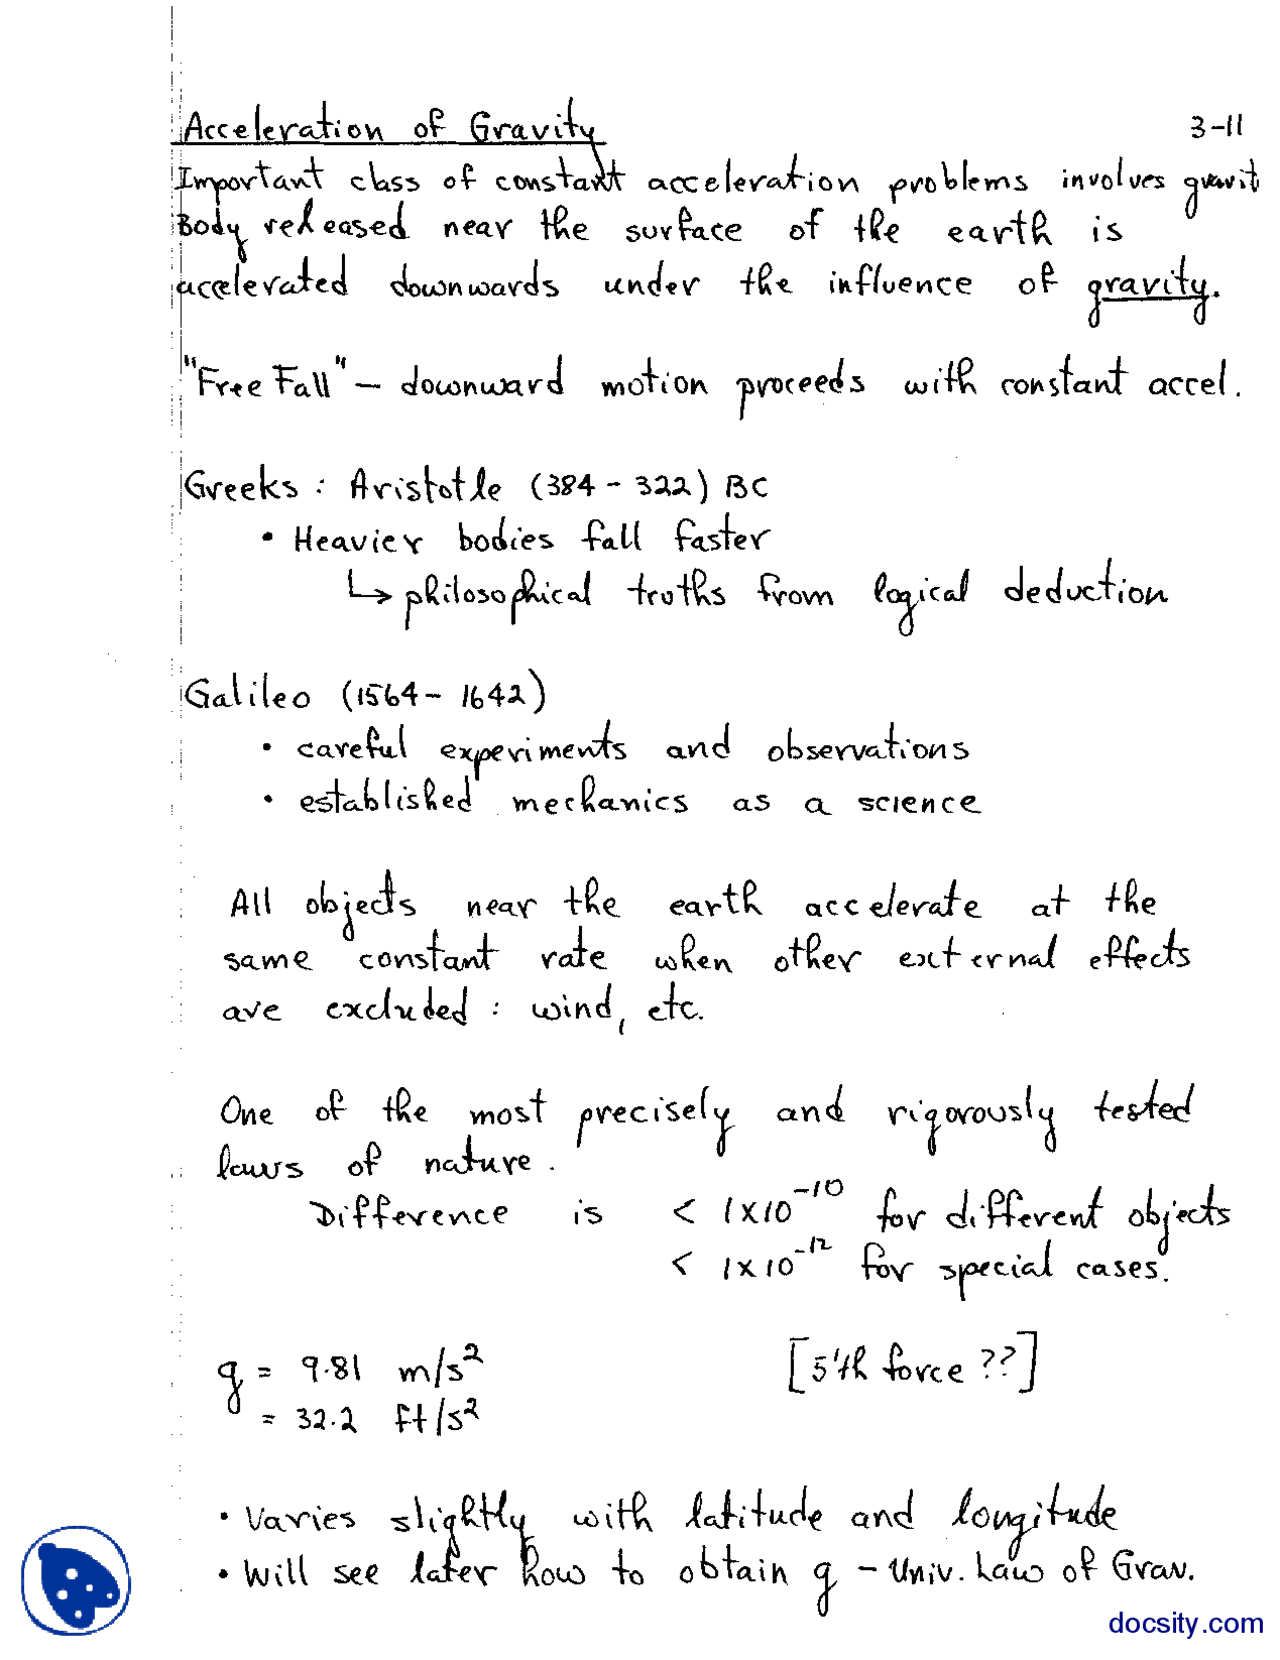 Acceleration of Gravity 3-11
Important class of constant acceleration problems involves gravit
Body released near the surface of the earth is
accelerated downwards under the influence of gravity.
"Free Fall" – downward motion proceeds with constant accel.
Greeks : Aristotle (384 - 322) BC
• Heavier bodies fall faster
↳ philosophical truths from logical deduction
Galileo (1564 - 1642)
• careful experiments and observations
• established mechanics as a science
All objects near the earth accelerate at the
same constant rate when other external effects
are excluded : wind, etc.
One of the most precisely and rigorously tested
laws of nature.
Difference is < 1x10⁻¹⁰ for different objects
< 1x10⁻¹² for special cases.
g = 9.81 m/s² [5'th force ??]
= 32.2 ft/s²
• Varies slightly with latitude and longitude
• Will see later how to obtain g - Univ. Law of Grav.
docsity.com